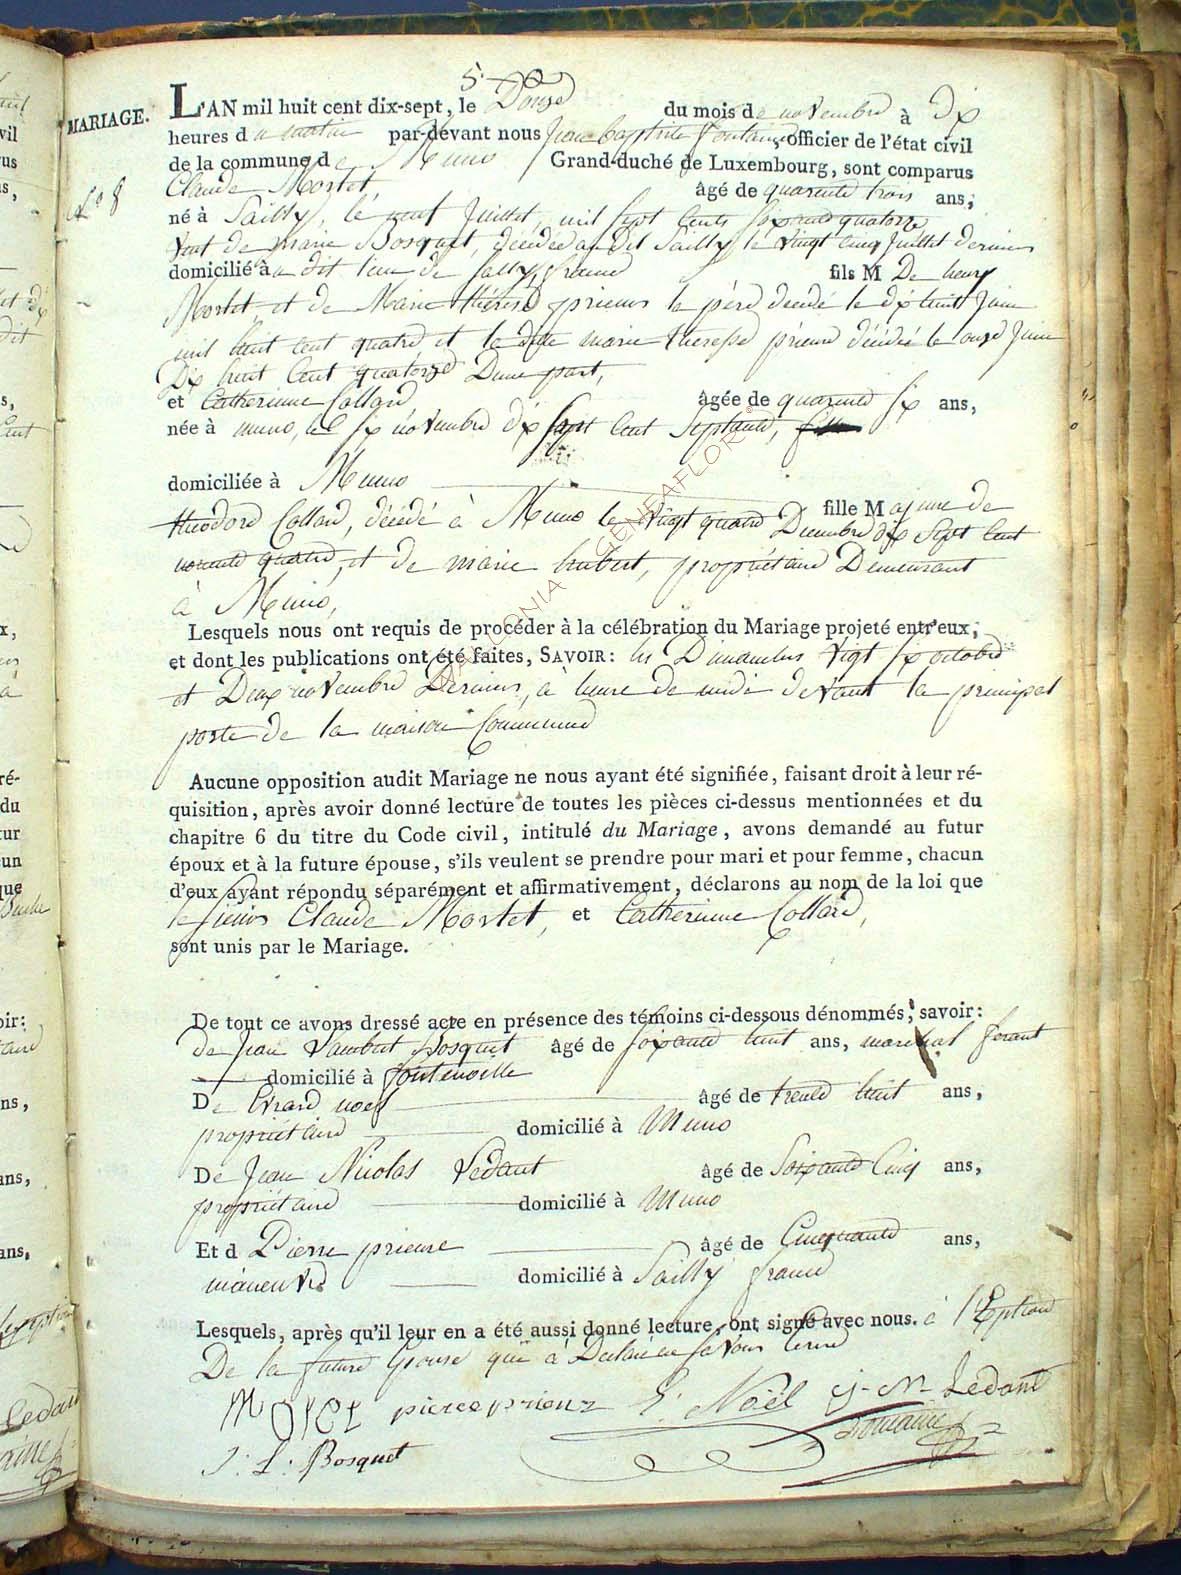 5.
MARIAGE.
L'AN mil huit cent dix-sept, le Douze du mois de novembre à Dix
heures du matin par-devant nous Jean baptiste fontaine, officier de l'état civil
de la commune de Muno Grand-duché de Luxembourg, sont comparus
N° 8
Claude Mortet, âgé de quarente trois ans,
né à Sailly, le neuf Juillet, mil sept cents soixante quatorze
veuf de marie Bosquet, décédée au dit Sailly le vingt cinq juillet dernier
domicilié à au dit lieu de Sailly france fils M De henry
Mortet, et de Marie thérèse prieur le père décédé le dix huit Juin
mil huit cent quatre et la dite marie theresse prieur décédé le onze Juin
Dix huit Cent quatorze D'une part,
et Catherinne Collard âgée de quarente six ans,
née à muno, le six novembre dix sept cent septante,
domiciliée à Muno
fille Majeure de
théodore Collard, décédé à Muno le vingt quatre Decembre dix sept cent
nonente quatre, et de marie hubert, propriétaire Demeurant
à Muno,
Lesquels nous ont requis de procéder à la célébration du Mariage projeté entr'eux,
et dont les publications ont été faites, SAVOIR: les Dimanches vigt six octobre
et Deux novembre Derniers, à heure de midi devant la principal
porte de la maison Commune
Aucune opposition audit Mariage ne nous ayant été signifiée, faisant droit à leur ré-
quisition, après avoir donné lecture de toutes les pièces ci-dessus mentionnées et du
chapitre 6 du titre du Code civil, intitulé du Mariage, avons demandé au futur
époux et à la future épouse, s'ils veulent se prendre pour mari et pour femme, chacun
d'eux ayant répondu séparément et affirmativement, déclarons au nom de la loi que
le sieur Claude Mortet, et Catherinne Collard,
sont unis par le Mariage.
De tout ce avons dressé acte en présence des témoins ci-dessous dénommés, savoir:
de Jean Lambert Bosquet âgé de soixante huit ans, marechal ferant
domicilié à fontenoille
De Erard noel âgé de trente huit ans,
propriétaire domicilié à Muno
De Jean Nicolas Ledant âgé de Soixante Cinq ans,
propriétaire domicilié à Muno
Et d Pierre prieur âgé de Cinquante ans,
domicilié à Sailly france
Lesquels, après qu'il leur en a été aussi donné lecture, ont signé avec nous. à l'Eption
De la future Epouse qui à Declaré ne savoir
Mortet pierre prieur E. Noël J. N. Ledant
J. L. Bosquet fontaine
WALLONIA GENEAFLOR